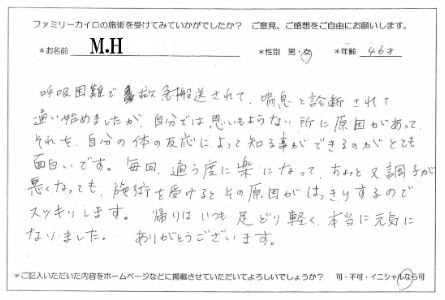 ファミリーカイロの施術を受けてみていかがでしたか? ご意見、ご感想をご自由にお願いします。
*お名前 M.H *性別 男・女 *年齢 46才
呼吸困難で救急搬送されて、喘息と診断されて
通い始めましたが、自分では思いもよらない所に原因があって、
それを、自分の体の反応によって知る事ができるのがとても
面白いです。毎回、通う度に楽になって、ちょっと又調子が
悪くなっても、施術を受けるとその原因がはっきりするので
スッキリします。帰りはいつも足どり軽く、本当に元気に
なりました。ありがとうございます。
*ご記入いただいた内容をホームページなどに掲載させていただいてよろしいでしょうか? 可・不可・イニシャルなら可